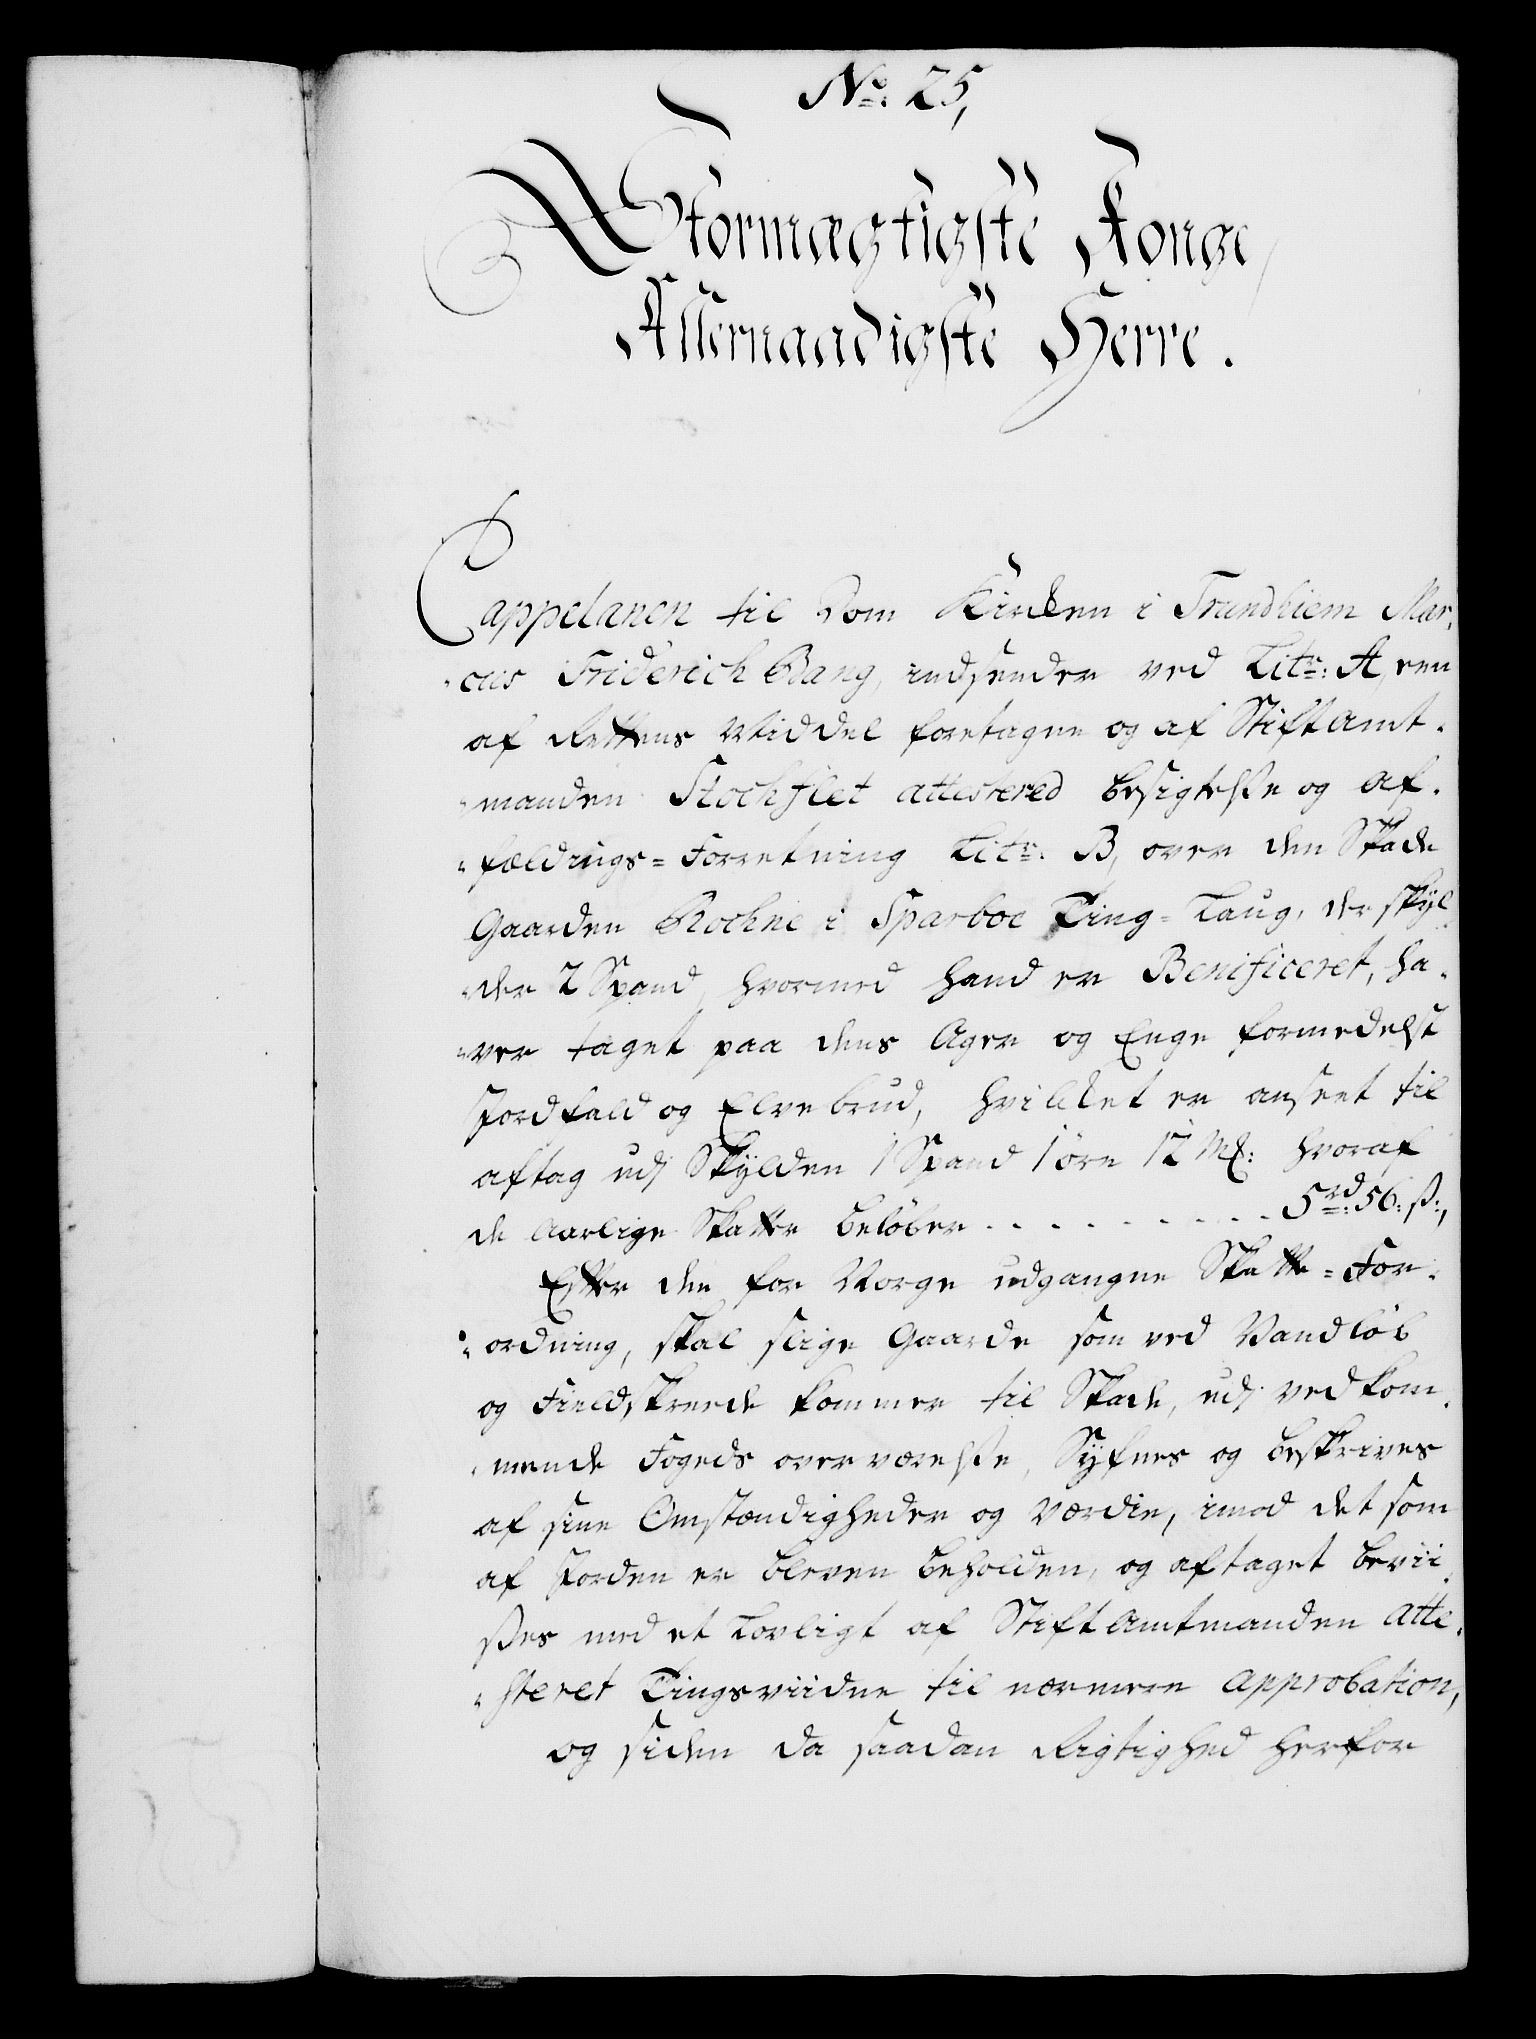 No: 25,
Stormægtigste Konge
Allernaadigste Herre.
Cappelanen til Dom Kirken i Trundhiem Mar,
cus Friderich Bang, indsender ved Litr: A, een
af Rettens Middel foretagne og af Stiftamt-
manden Stockflet attestered besigtelse og af-
fældings-Forretning Litr: B, over den Skade
Gaarden Rochne i Sparboe Ting-Laug, der skyl,
der 2 Spand, hvormed hand er Benificeret, ha-
ver taget paa dens Ager og Enge formedelst
Jordfald og Elvebrud, hvilket er anseet til
aftag udj Skylden 1 Spand 1 öre 12 Mk: hvoraf
de Aarlige Skatter beløber . . . . . . . . . . 5rd: 56: ß:,
Efter den for Norge udgangne Skatte-For-
ordning, skal slige Gaarde som ved Vandløb
og Field,skreede kommer til Skade, udj vedkom-
mende Fogeds overværelse, Syfnes og beskrives
af sine Omstændigheder og Værdie, imod det som
af Jorden er bleven beholden, og aftaget bevii
ses med et Lovligt af Stiftamtmanden atte-
steret Tingsviidne til nærmere approbation,
og siden da saadan Rigtighed herfor